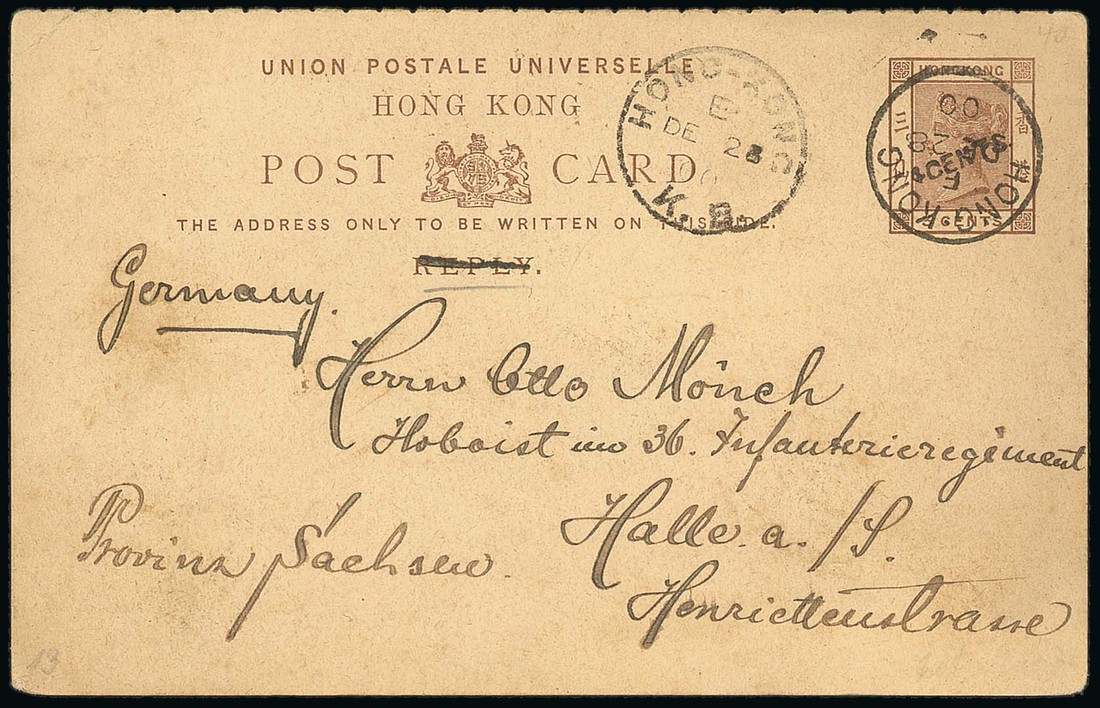 40
UNION POSTALE UNIVERSELLE
HONG KONG
POST CARD
THE ADDRESS ONLY TO BE WRITTEN ON THIS SIDE.
REPLY.
HONG-KONG
E
DE 28
00
K. B.
HONGKONG
香
三
CENTS
HONG KONG
E
DE 28
00
Germany.
Herrn Otto Mönch
Hoboist im 36. Infanterieregiment
Halle. a. /S.
Provinz Sachsen.
Henriettenstrasse
13